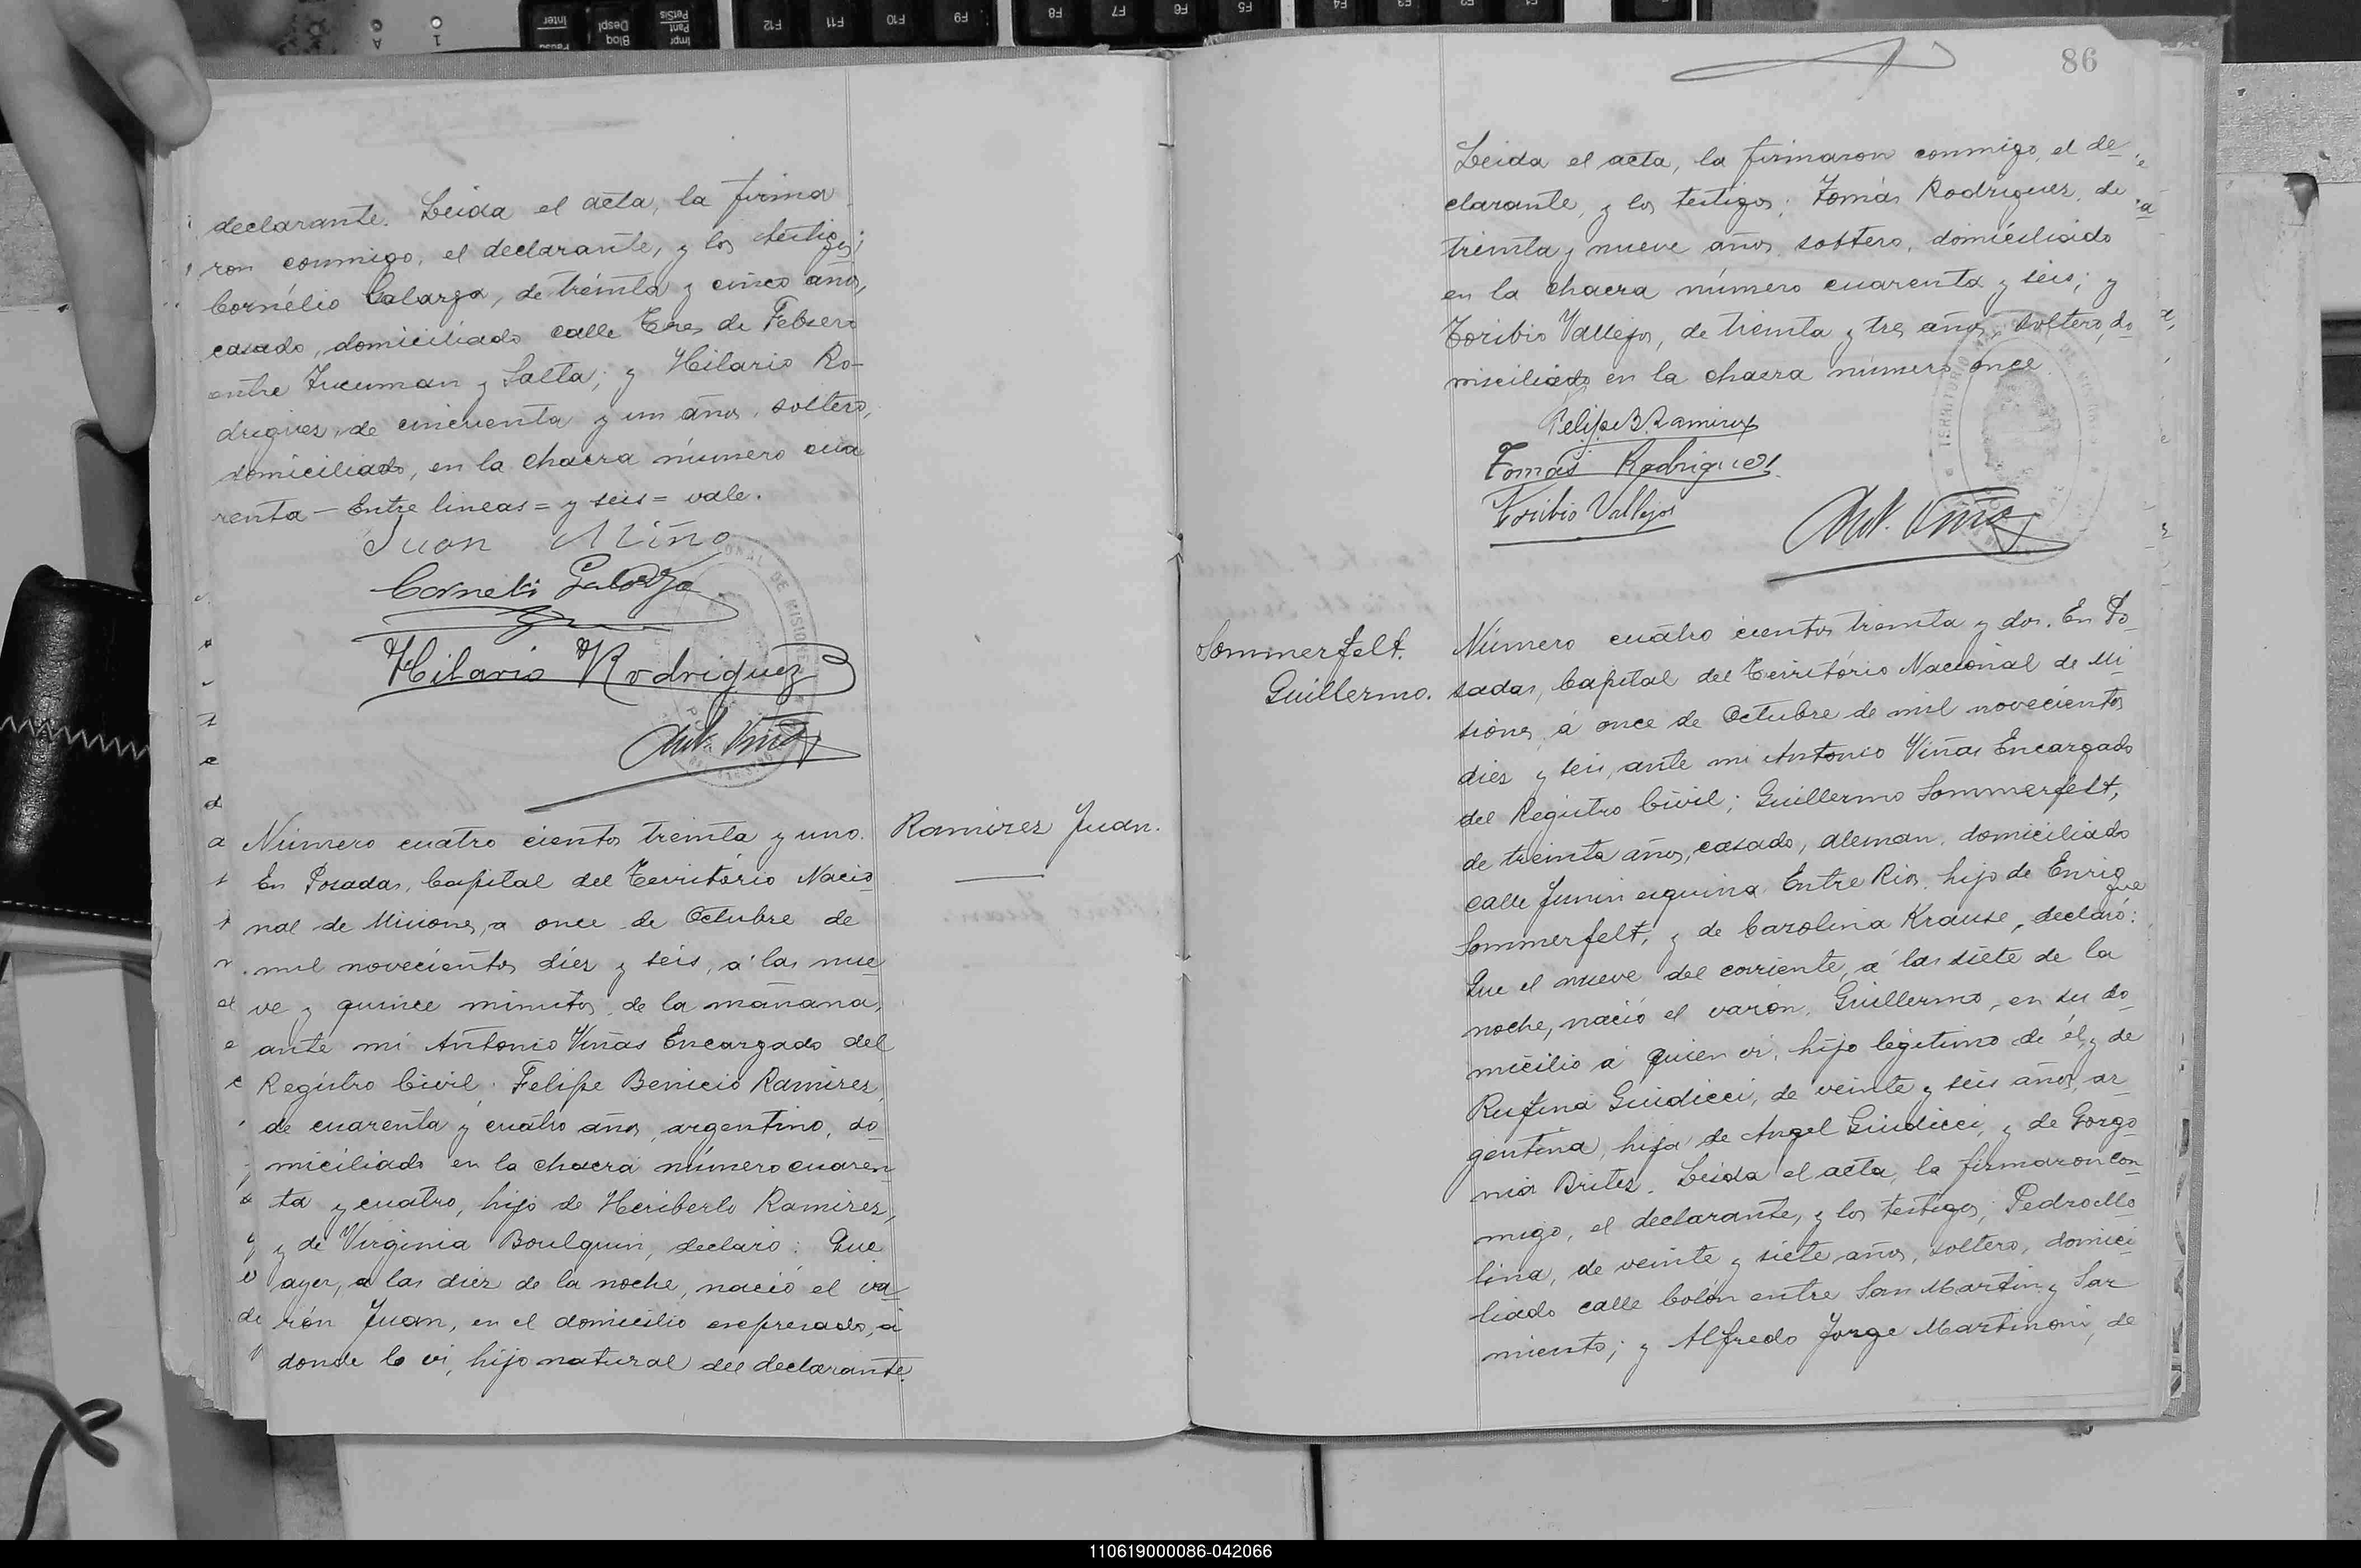 declarante. Leida el acta, la firma
ron conmigo, el declarante, y los testigos;
Cornélio Galarza, de treinta y cinco años,
casado, domiciliado calle Tres de Febrero
entre Tucuman y Salta; y Hilario Ro-
driguez, de cincuenta y un años, soltero,
domiciliado, en la chacra número cua
renta — Entre lineas = y seis = vale.
Juan Miño
Cornelio Galarza
Hilario Rodriguez
Ant. Viñas
Número cuatro cientos treinta y uno.
Ramirez Juan.
En Posadas, Capital del Território Nacio
nal de Misiones, a once de Octubre de
mil novecientos diez y seis, a las nue
ve y quince minutos de la mañana,
ante mi Antonio Viñas Encargado del
Registro Civil, Felipe Benicio Ramirez,
de cuarenta y cuatro años, argentino, do
miciliado en la chacra número cuaren
ta y cuatro, hijo de Heriberto Ramirez,
y de Virginia Boulquin, declaró: Que
ayer, a las diez de la noche, nació el va
rón Juan, en el domicilio expresado, a
donde lo vi, hijo natural del declarante.
86
Leida el acta, la firmaron conmigo, el de
clarante, y los testigos; Tomás Rodriguez, de
treinta y nueve años soltero, domiciliado
en la chacra número cuarenta y seis; y
Toribio Vallejos, de treinta y tres años, soltero, do
miciliado en la chacra número once.
Felipe B. Ramirez
Tomás Rodriguez
Toribio Vallejos
Ant. Viñas
Sommerfelt.
Guillermo.
Número cuatro cientos treinta y dos. En Po
sadas, Capital del Território Nacional de Mi
siones, á once de Octubre de mil novecientos
diez y seis, ante mi Antonio Viñas Encargado
del Registro Civil; Guillermo Sommerfelt,
de treinta años, casado, aleman, domiciliado
calle Junin esquina Entre Rios, hijo de Enrique
Sommerfelt, y de Carolina Krause, declaró:
Que el nueve del corriente, a las siete de la
noche, nació el varón, Guillermo, en su do
micilio a quien vi, hijo legitimo de él, y de
Rufina Giudicci, de veinte y seis años, ar
gentina, hija de Angel Giudicci, y de Gorgo
nia Britez. Leida el acta, la firmaron con
migo, el declarante, y los testigos; Pedro Mo
lina, de veinte y siete años, soltero, domici
liado calle Colón entre San Martin y Sar
miento; y Alfredo Jorge Martinoni, de
110619000086-042066